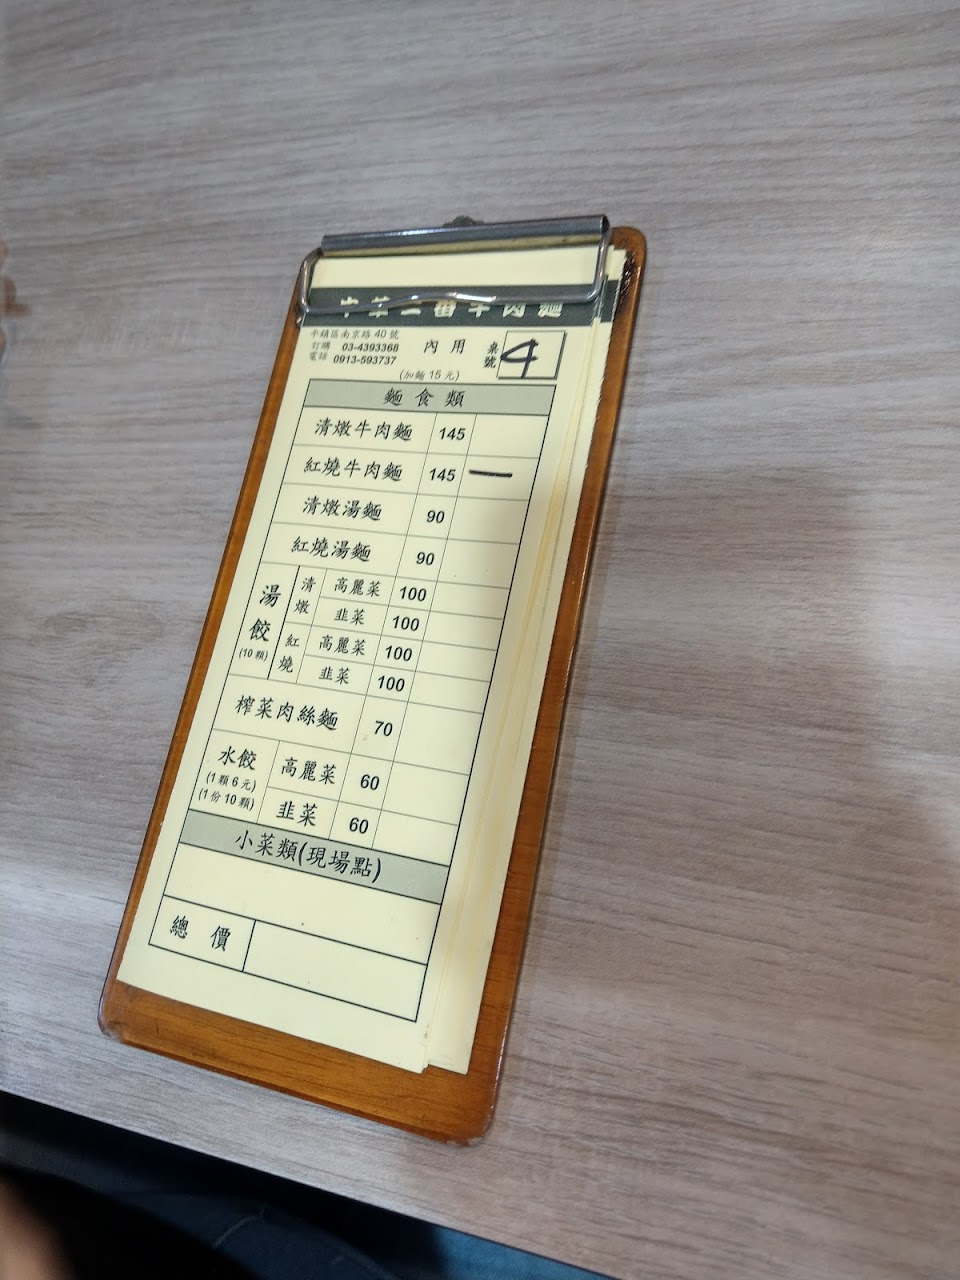 中華一番牛肉麵
平鎮區南京路 40 號
訂購 03-4393368
電話 0913-593737
內用
桌號 4
(加麵 15 元)
麵食類
清燉牛肉麵 145
紅燒牛肉麵 145 一
清燉湯麵 90
紅燒湯麵 90
湯餃 (10 顆)
清燉 高麗菜 100
韭菜 100
紅燒 高麗菜 100
韭菜 100
榨菜肉絲麵 70
水餃 (1 顆 6 元) (1 份 10 顆)
高麗菜 60
韭菜 60
小菜類(現場點)
總價